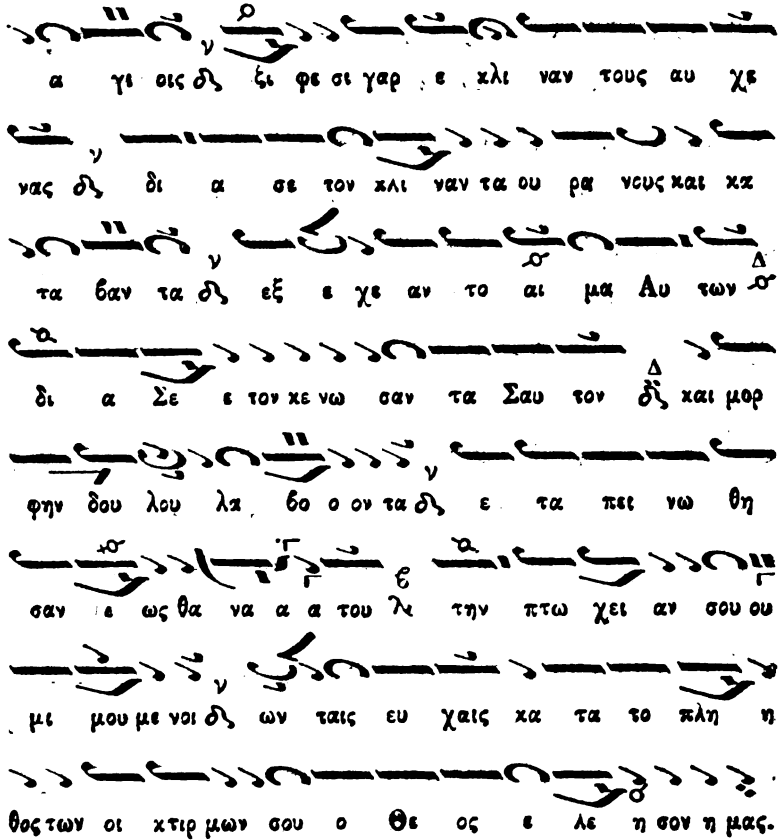 α γι οις ξι φε σι γαρ ε κλι ναν τους αυ χε
νας δι α σε τον κλι ναν τα ου ρα νους και κα
τα βαν τα εξ ε χε αν το αι μα Αυ των
δι α Σε ε τον κε νω σαν τα Σαυ τον και μορ
φην δου λου λα βο ο ον τα ε τα πει νω θη
σαν ε ως θα να α α του την πτω χει αν σου ου
μι μου με νοι ων ταις ευ χαις κα τα το πλη η
θος των οι κτιρ μων σου ο Θε ος ε λε η σον η μας.